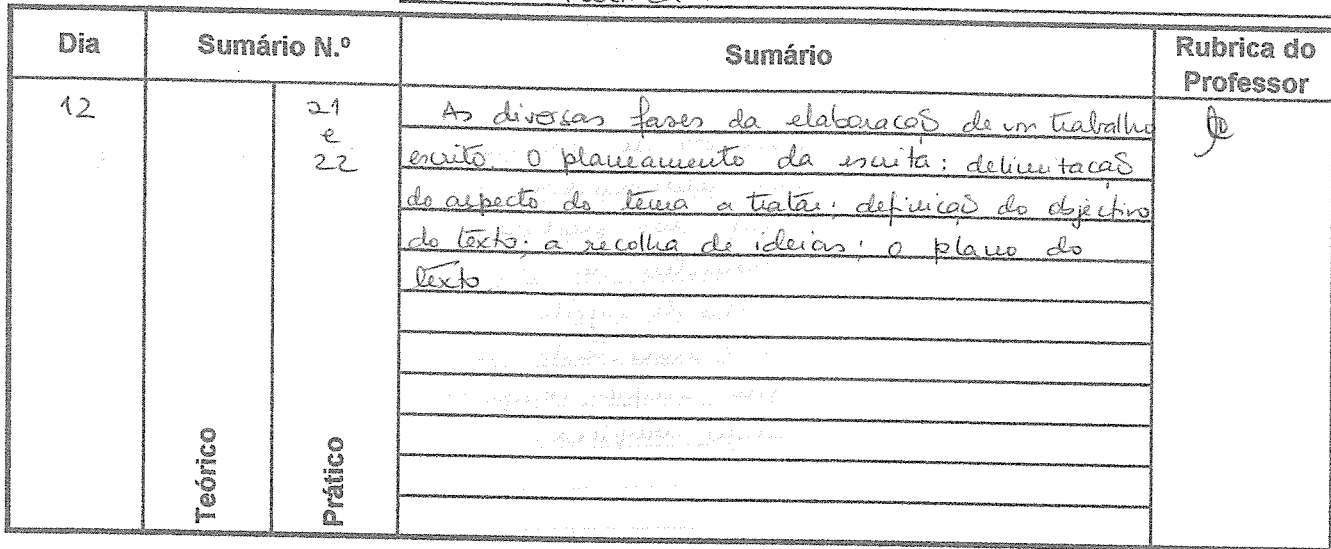 Dia Sumário N.º Sumário Rubrica do Professor
12
21
e
22
As diversas fases da elaboração de um trabalho
escrito. O planeamento da escrita: delimitação
do aspecto do tema a tratar; definição do objectivo
do texto; a recolha de ideias; o plano do
texto
Teórico
Prático